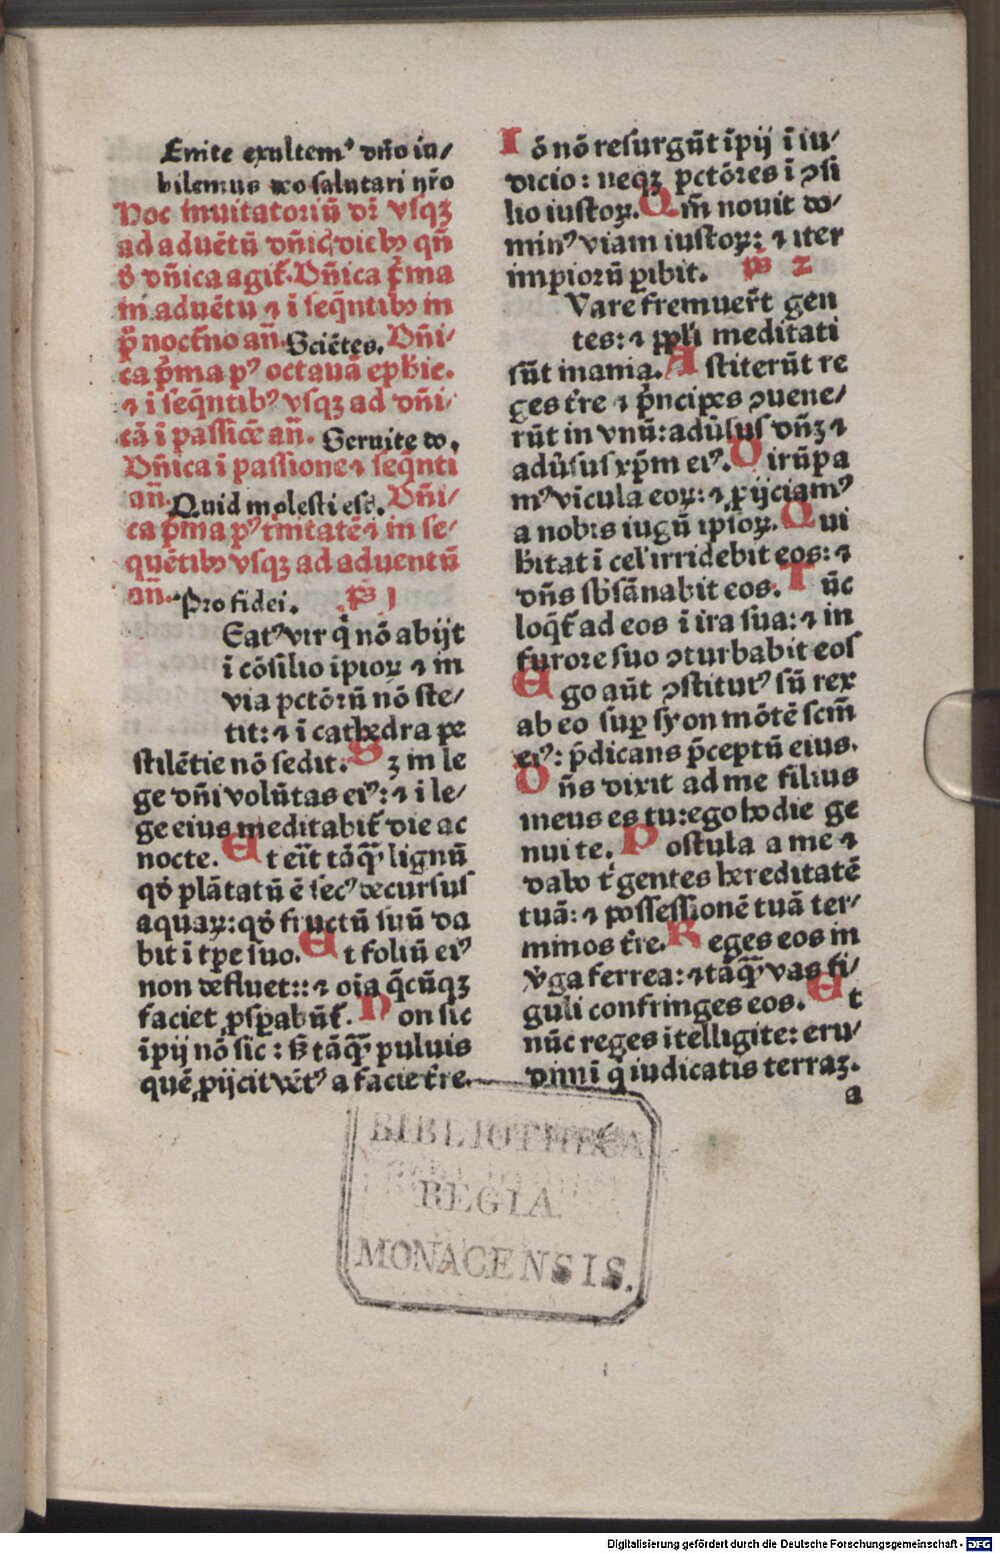 Enite exultemꝰ dño iu/
bilemus deo salutari nr̄o
Hoc inuitatoriū dr̄ vsqꝫ
ad aduētū dñicꝭ diebꝰ qñ
ð dñica agit᷑. Dñica p̄ma
in aduētu ⁊ i seq̄ntibꝰ in
pº noct᷑no añ. Sciētes. Dñi/
ca p̄ma pꝰ octauā epħie.
⁊ i seq̄ntibꝰ vsqꝫ ad dñi/
cā i passiōē añ. Seruite do.
Dñica i passione ⁊ seq̄nti
añ. Quid molesti est. Dñi/
ca p̄ma pꝰ t᷑nitatē ⁊ in se/
quētibꝰ vsqꝫ ad aduentū
añ. Pro fidei. ps̄ 1
Eatꝰ vir q̇ nō abijt
i cōsilio ipioꝝ ⁊ in
via pctōrū nō ste/
tit: ⁊ i cathedra pe
stilētie nō sedit. S ꝫ in le
ge dñi volūtas eiꝰ: ⁊ i le/
ge eius meditabit᷑ die ac
nocte. E t er̄it tāqꝫ̄ lignū
qð plātatū ē secꝰ decursus
aquaꝝ: qð fructū suū da
bit i tp̄e suo. E t foliū eiꝰ
non defluet:: ⁊ oīa q̄cūqꝫ
faciet ꝓspabūt᷑. N on sic
īpij nō sic: sꝫ tāqꝫ̄ puluis
quē ꝓijcit vētꝰ a facie t᷑re.
I ō nō resurgūt īpij ī iu/
dicio: neqꝫ pctōres ī ꝯsi
lio iustoꝝ. Q m̄ nouit do/
minꝰ viam iustoꝝ: ⁊ iter
impiorū ꝑibit. ps̄ 2
Vare fremuer̄t gen
tes: ⁊ ppl̄i meditati
sūt inania. A stiterūt re
ges t᷑re ⁊ p̄ncipes ꝯuene/
rūt in vnū: aduſus dñꝫ ⁊
aduſus xp̄m eiꝰ. D irūpa
mꝰ vīcula eoꝝ: ⁊ ꝓijciamꝰ
a nobis iugū ipīoꝝ. Q ui
ħitat ī cel᷑ irridebit eos: ⁊
dñs sb̄sānabit eos. T ūc
loq̄t᷑ ad eos ī ira sua: ⁊ in
furore suo ꝯturbabit eos
E go aūt ꝯstitutꝰ sū rex
ab eo suꝑ syon mōtē scm̄
eiꝰ: p̄dicans p̄ceptū eius.
D ñs dixit ad me filius
meus es tu: ego hodie ge
nui te. P ostula a me ⁊
dabo t᷑ gentes hereditatē
tuā: ⁊ possessionē tuā ter/
minos t᷑re. R eges eos in
v᷑ga ferrea: ⁊ tāqꝫ̄ vas fi/
guli confringes eos. E t
nūc reges itelligite: eru/
dimī q̇ iudicatis terraꝫ.
a
BIBLIOTHECA
REGIA
MONACENSIS.
Digitalisierung gefördert durch die Deutsche Forschungsgemeinschaft - DFG